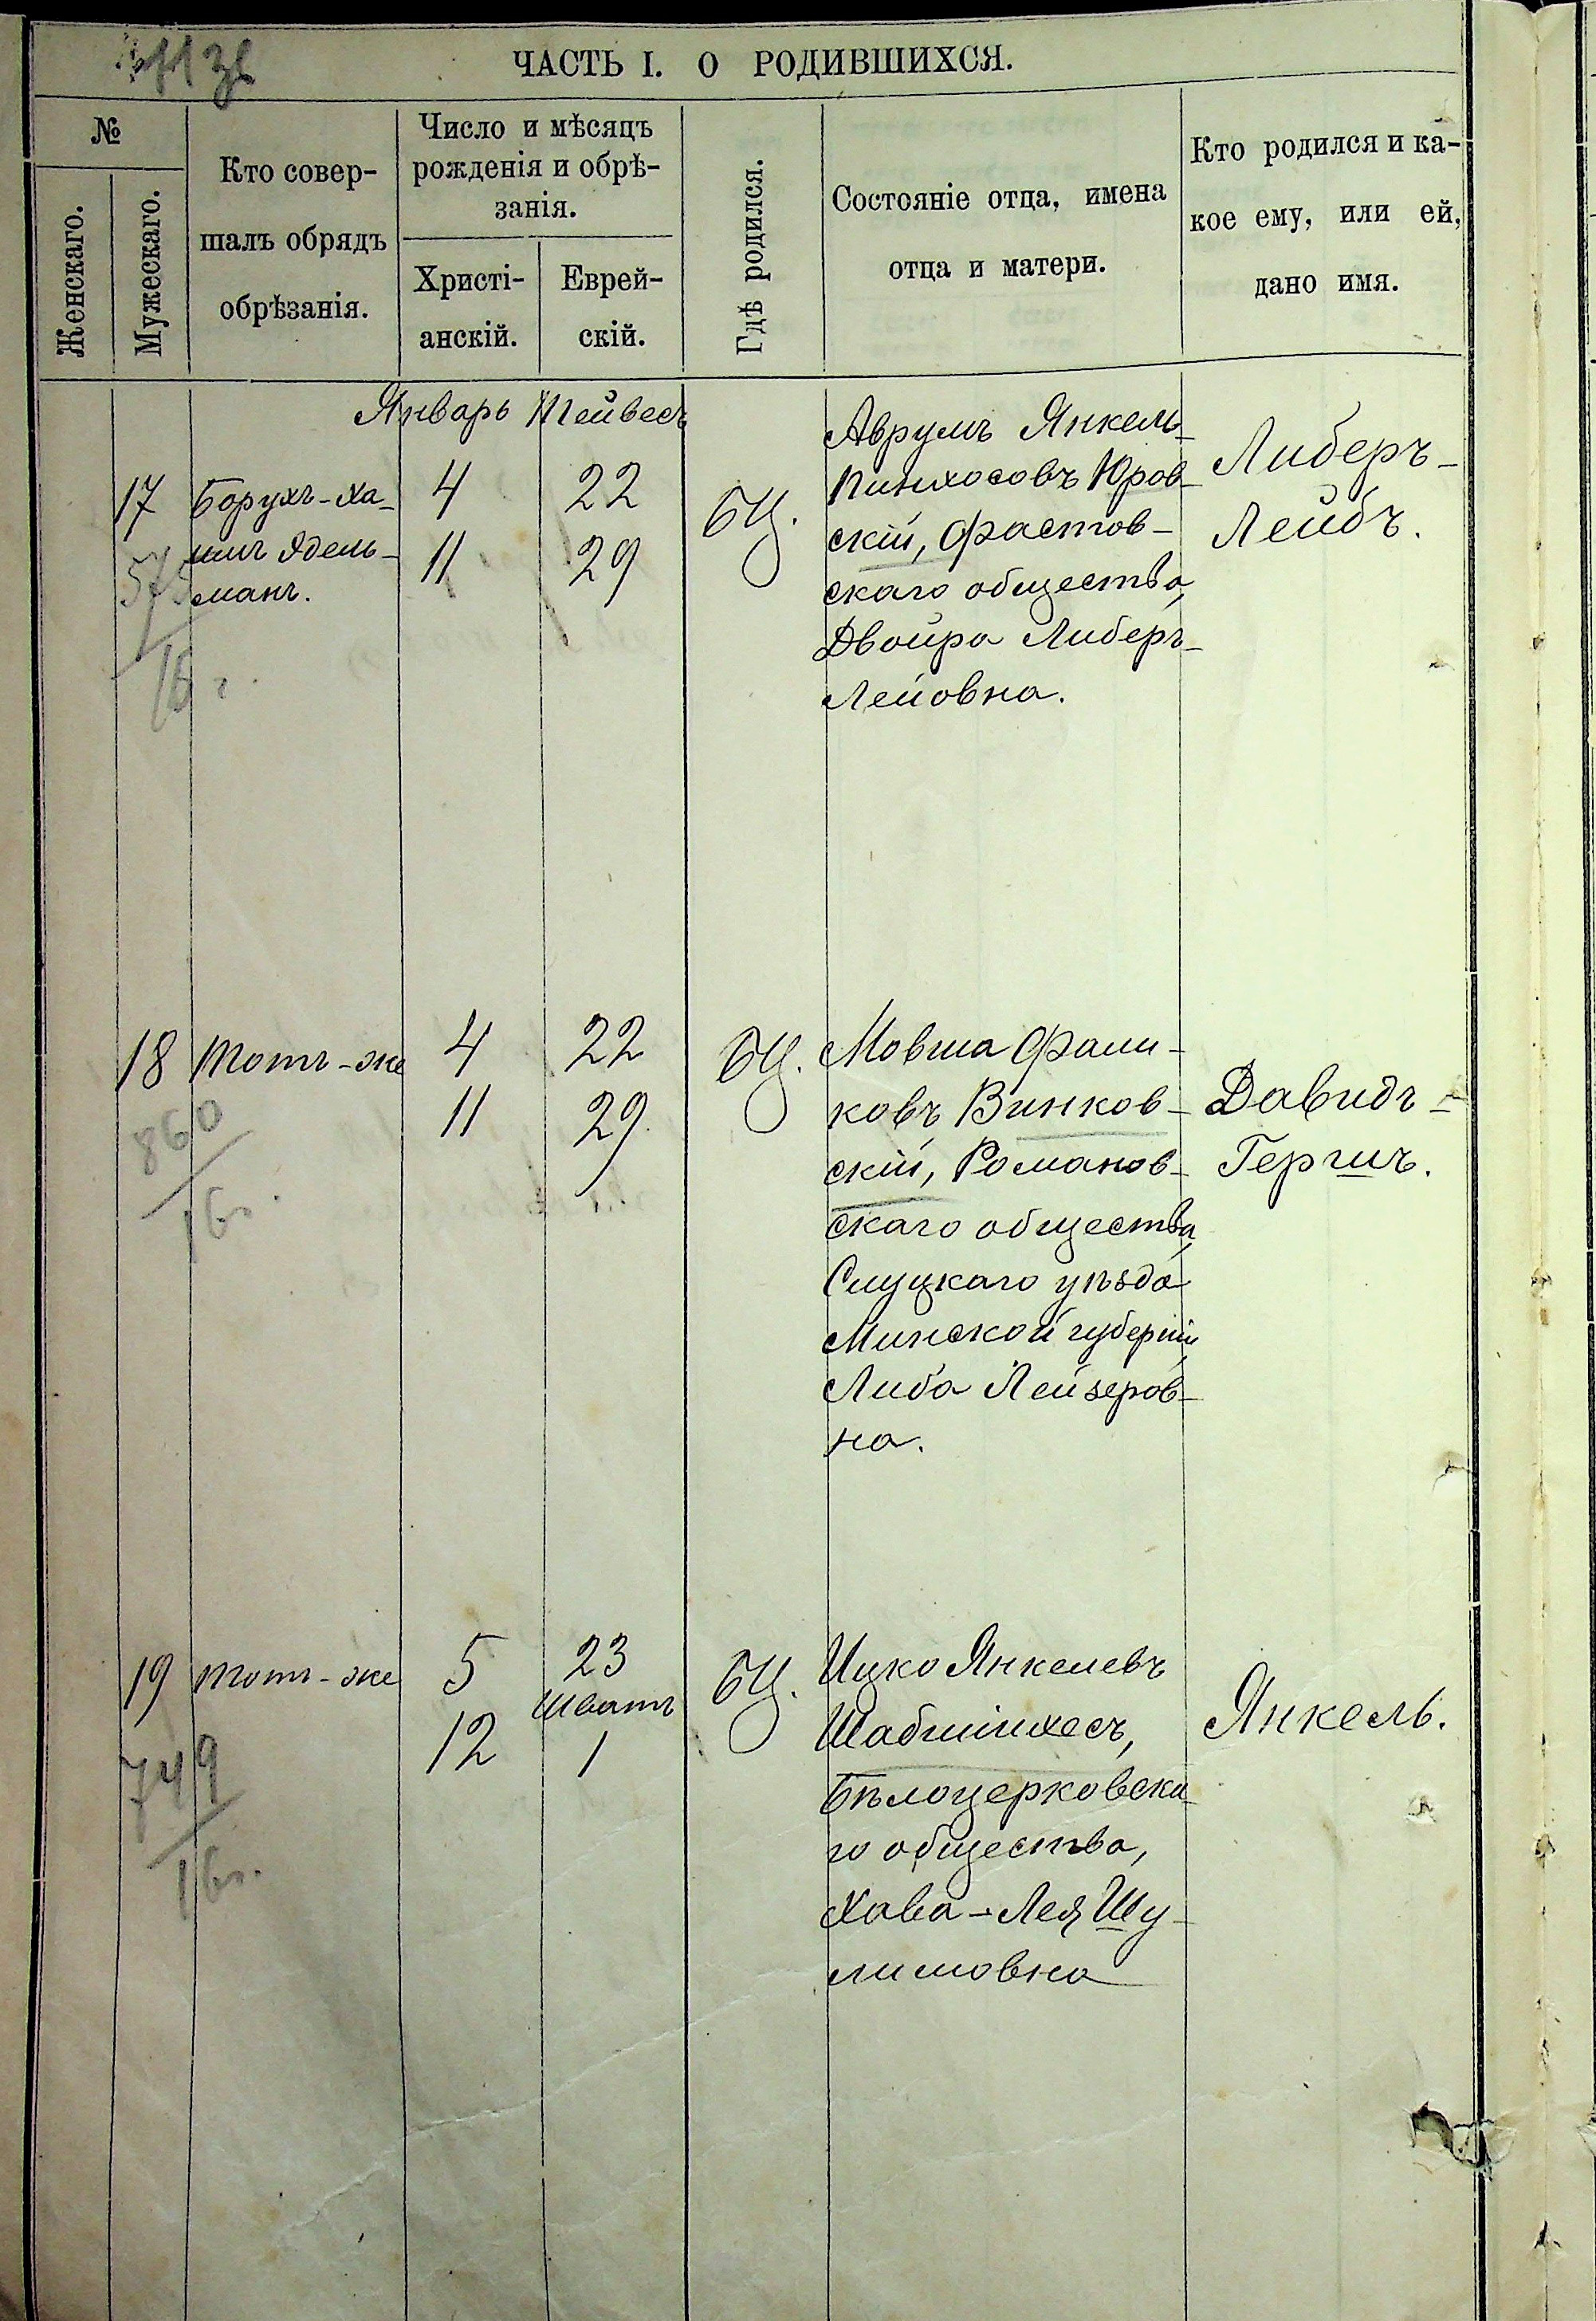 ЧАСТЬ I. О РОДИВШИХСЯ.
№
Женскаго.
Мужескаго.
Кто совер-
шалъ обрядъ
обрѣзанія.
Число и мѣсяцъ
рожденія и обрѣ-
занія.
Христі-
анскій.
Еврей-
скій.
Гдѣ родился.
Состояніе отца, имена
отца и матери.
Кто родился и ка-
кое ему, или ей,
дано имя.
Январь Тейвесъ
17
Борухъ-Ха-
имъ Эдель-
манъ.
575
16 г.
4 22
11 29
БЦ.
Аврумъ Янкель-
Пинхосовъ Юров-
скій, Фастов-
скаго общества,
Двойра Либеръ-
Лейовна.
Либеръ-
Лейбъ.
18
Тотъ-же
860
16г.
4 22
11 29
БЦ.
Мовша Фали-
ковъ Винков-
скій, Романов-
скаго общества,
Слуцкаго уѣзда
Минской губерніи,
Либа Лейзеров-
на.
Давидъ-
Гершъ.
19
Тотъ-же
749
16г.
5 23
Шватъ
12 1
БЦ.
Ицко Янкелевъ
Бѣлоцерковска-
го общества,
Хава-Лея Шу-
лимовна
Янкель.